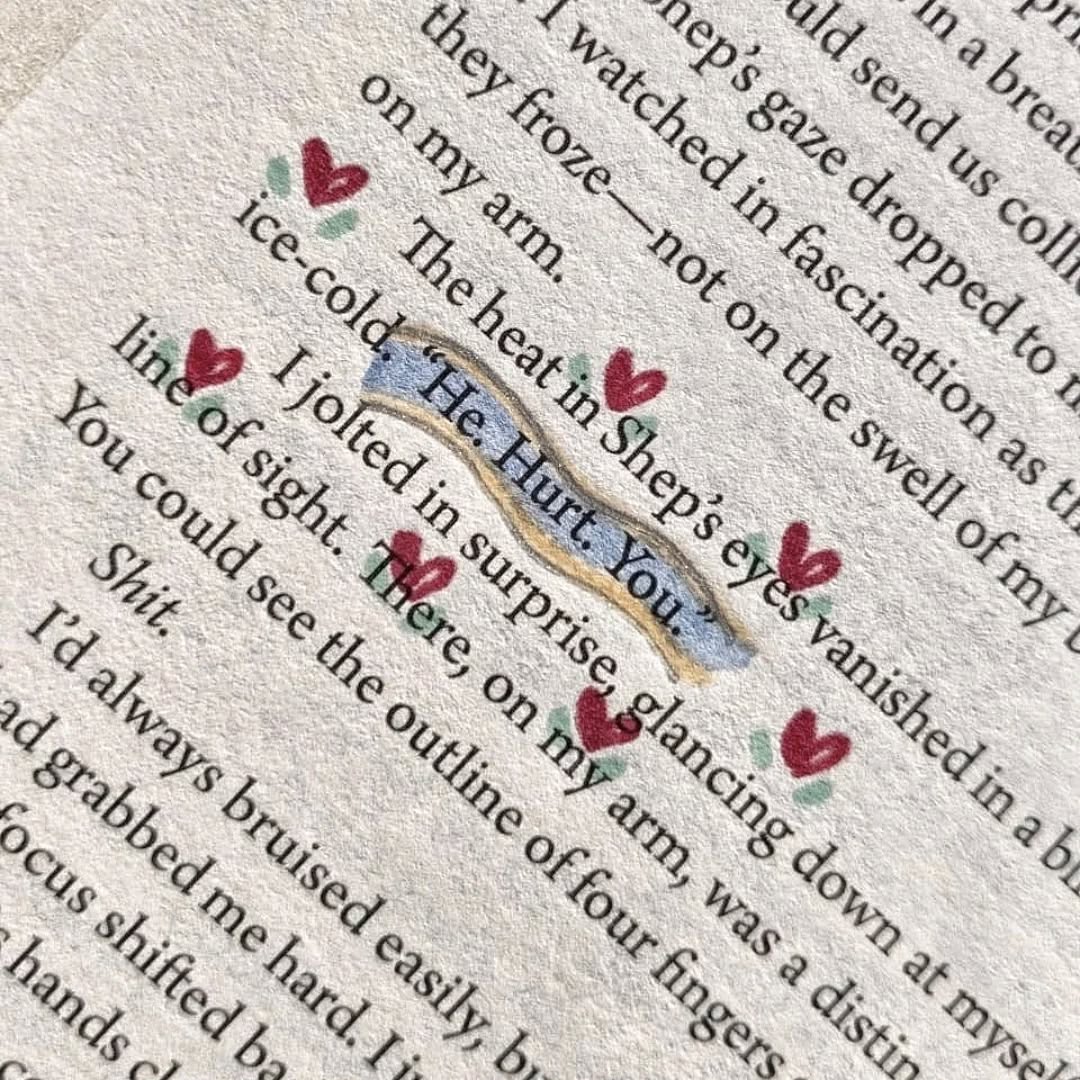 in a
send us
gaze dropped to
I watched in fascination as
they froze—not on the swell of my
on my arm.
The heat in Shep’s eyes vanished in a
ice-cold. “He. Hurt. You.”
I jolted in surprise, glancing down at
line of sight. There, on my arm, was a
You could see the outline of four fingers
Shit.
I’d always bruised easily,
grabbed me hard. I
focus shifted
hands